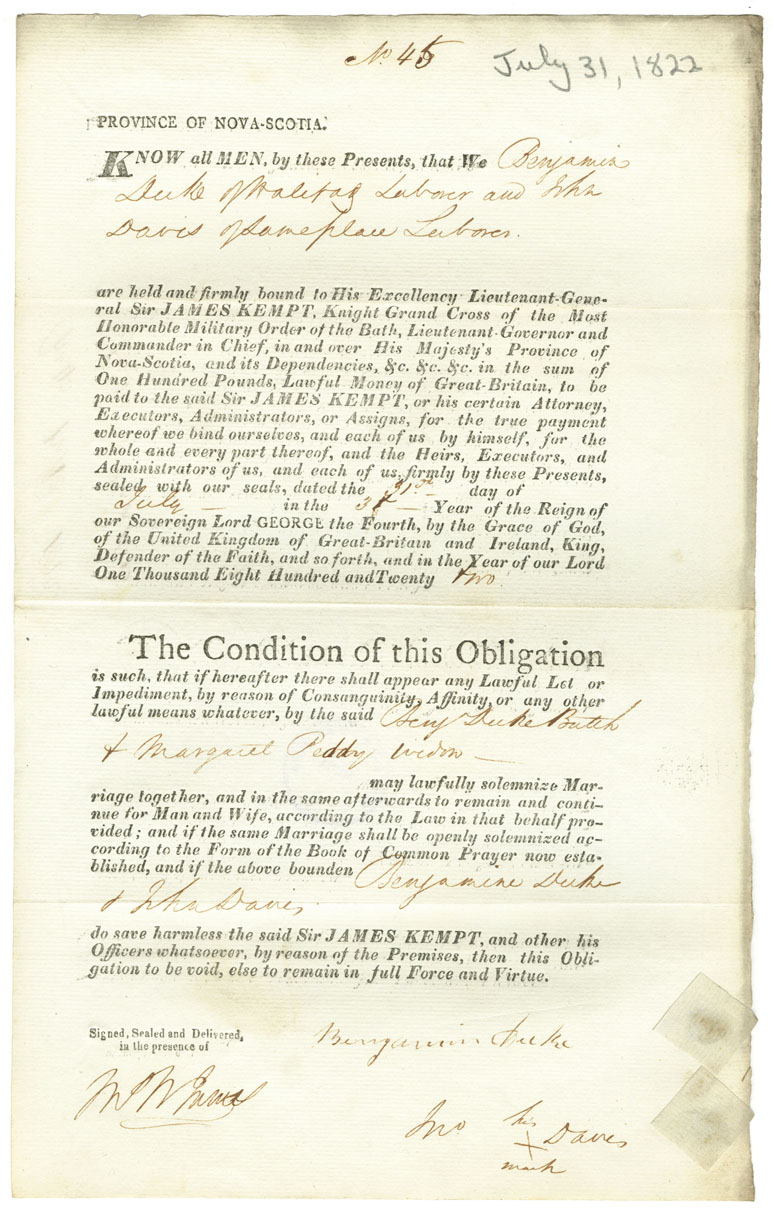 No 45
July 31, 1822
PROVINCE OF NOVA-SCOTIA.
KNOW all MEN, by these Presents, that We Benjamin
Duke of Halifax Laborer and John
Davis of Same place Laborer.
are held and firmly bound to His Excellency Lieutenant-Gene-
ral Sir JAMES KEMPT, Knight Grand Cross of the Most
Honorable Military Order of the Bath, Lieutenant-Governor and
Commander in Chief, in and over His Majesty's Province of
Nova-Scotia, and its Dependencies, &c. &c. &c. in the sum of
One Hundred Pounds, Lawful Money of Great-Britain, to be
paid to the said Sir JAMES KEMPT, or his certain Attorney,
Executors, Administrators, or Assigns, for the true payment
whereof we bind ourselves, and each of us by himself, for the
whole and every part thereof, and the Heirs, Executors, and
Administrators of us, and each of us, firmly by these Presents,
sealed with our seals, dated the 31st day of
July in the 3d Year of the Reign of
our Sovereign Lord GEORGE the Fourth, by the Grace of God,
of the United Kingdom of Great-Britain and Ireland, King,
Defender of the Faith, and so forth, and in the Year of our Lord
One Thousand Eight Hundred and Twenty two
The Condition of this Obligation
is such, that if hereafter there shall appear any Lawful Let or
Impediment, by reason of Consanguinity, Affinity, or any other
lawful means whatever, by the said Benj Duke Batch
& Margaret Peddy widow
may lawfully solemnize Mar-
riage together, and in the same afterwards to remain and conti-
nue for Man and Wife, according to the Law in that behalf pro-
vided; and if the same Marriage shall be openly solemnized ac-
cording to the Form of the Book of Common Prayer now esta-
blished, and if the above bounden Benjamine Duke
& John Davis
do save harmless the said Sir JAMES KEMPT, and other his
Officers whatsoever, by reason of the Premises, then this Obli-
gation to be void, else to remain in full Force and Virtue.
Signed, Sealed and Delivered,
in the presence of
Benjamin Duke
Jno his X mark Davis